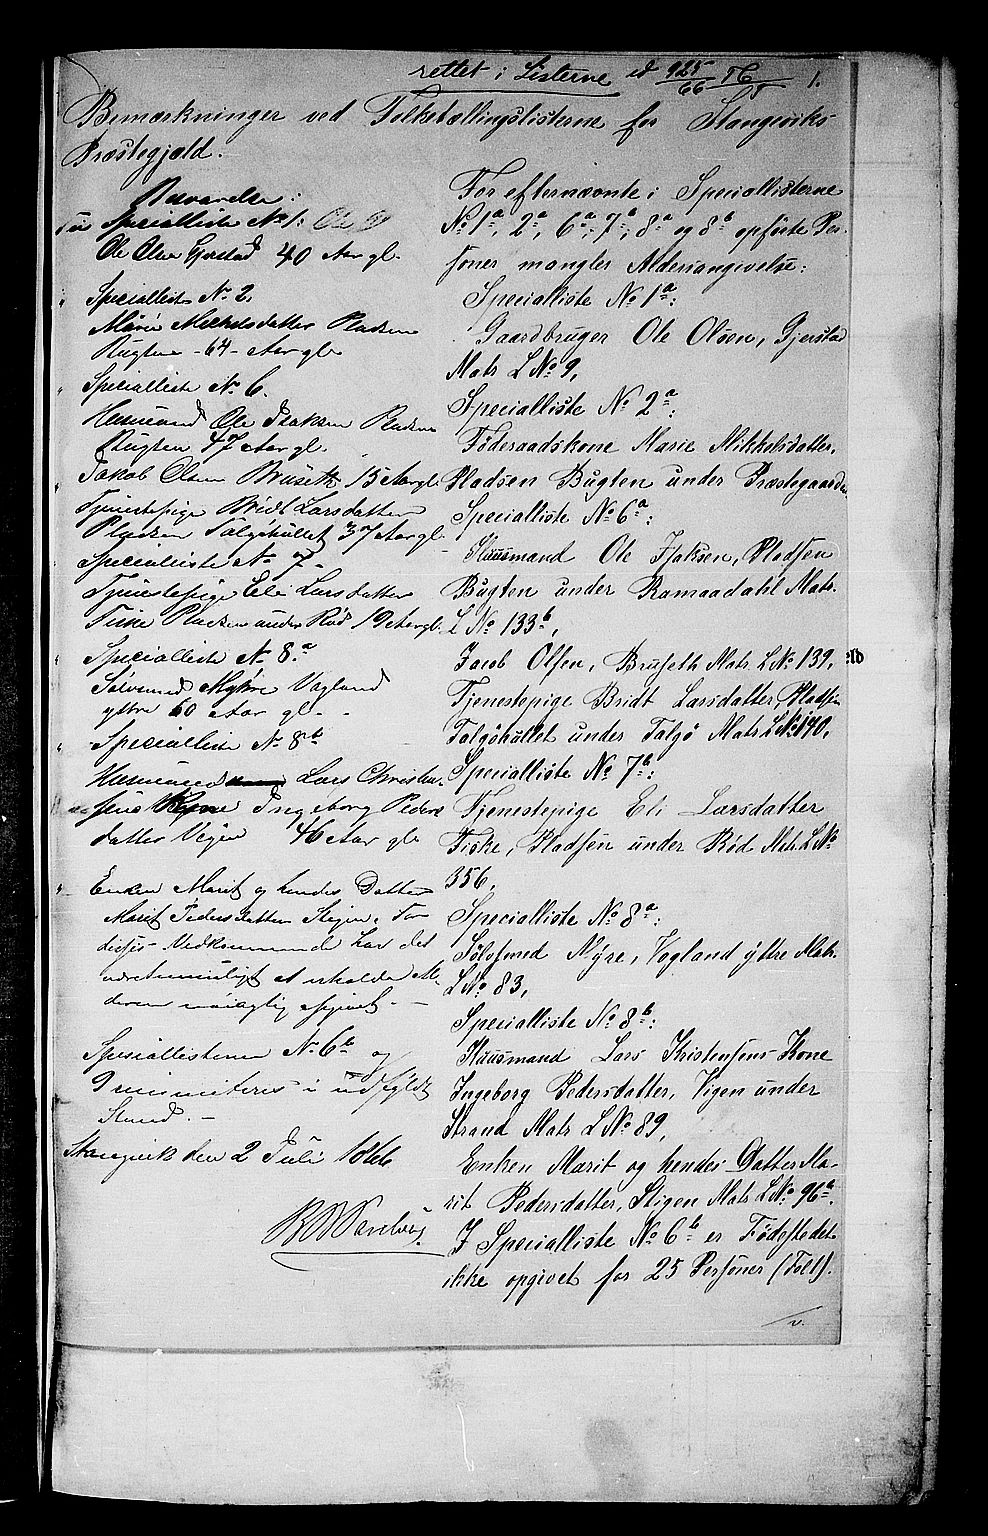 rettet i Listerne 925/66 1.
Bemærkninger ved Folketællingslisterne for Stangviks
Præstegjæld.
Besvarelse:
Specialliste No 1: Ole O
Ole Olsen Gjerstad 40 Aar gl.
Specialliste No 2.
Marie Mikkelsdatter Pladsen
Bugten - 64 - Aar gl.
Specialliste No 6.
Husmand Ole Isaksen Pladsen
Bugten 47 Aar gl.
Jakob Olsen Bruset 15 Aar gl.
Tjenestepige Bridt Larsdatter
Pladsen Talgøhullet 37 Aar gl.
Specialliste No 7 -
Tjenestepige Eli Larsdatter
Fiske Pladsen under Rød 19 Aar gl.
Specialliste No 8.a
Sølvsmed Nyre Vagland
yttre 60 Aar gl. -
Specialliste No 8b
Husmand Lars Christen-
sens Kone Ingeborg Peders
datter Vigen 46 Aar gl.
Enken Marit og hendes Datter
Marit Pedersdatter Stigen. For
disses Vedkommende har det
været umuligt at erholde Al-
deren nøiagtig opgivet. -
Speciallisterne No 6b og
9 remitteres i udfyldt
Stand. -
Stangvik den 2 Juli 1866
For efternævnte i Speciallisterne
No 1a, 2a, 6a, 7b, 8a og 8b opførte Per-
soner mangler Aldersangivelse:
Specialliste No 1a:
Gaardbruger Ole Olsen, Gjerstad
Matr. L No 9,
Specialliste No 2a:
Føderaadskone Marie Mikkelsdatter,
Pladsen Bugten under Præstegaarden
Specialliste No 6a:
Huusmand Ole Isaksen, Pladsen
Bugten under Romaadahl Matr.
L No 133b,
Jacob Olsen, Bruseth Matr. L No 139,
Tjenestepige Bridt Larsdatter, Pladsen
Talgøhullet under Talgø Matr. L No 140,
Specialliste No 7b:
Tjenestepige Eli Larsdatter
Fiske, Pladsen under Rød Matr. L No
356,
Specialliste No 8a:
Sølvsmed Nyre, Vogland yttre Matr.
L No 83,
Specialliste No 8b:
Huusmand Lars Kristensens Kone
Ingeborg Pedersdatter, Vigen under
Strand Matr. L No 89,
Enken Marit og hendes Datter Ma-
rit Pedersdatter, Stigen Matr. L No 96a.
I Specialliste No 6b er Fødestedet
ikke opgivet for 25 Personer (Folt).
v.
eld